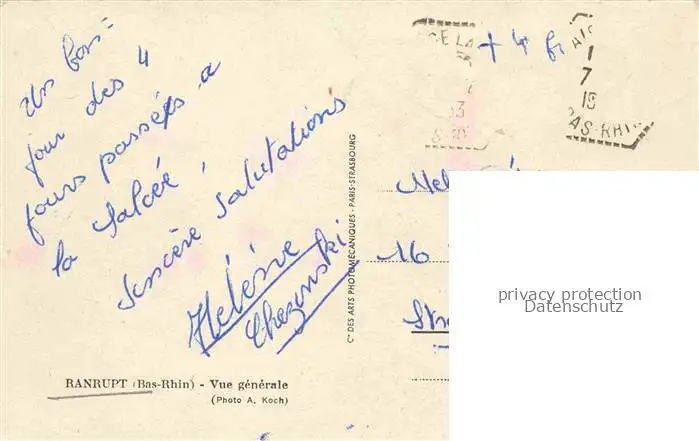 Un bon=
jour des 4
jours passées a
la Salcée,
Sincère Salutations
Hélène
RANRUPT (Bas-Rhin) - Vue générale
(Photo A. Koch)
Cie DES ARTS PHOTOMÉCANIQUES - PARIS-STRASBOURG
+ 4 fr
1
7
19
BAS-RHIN
16
privacy protection
Datenschutz